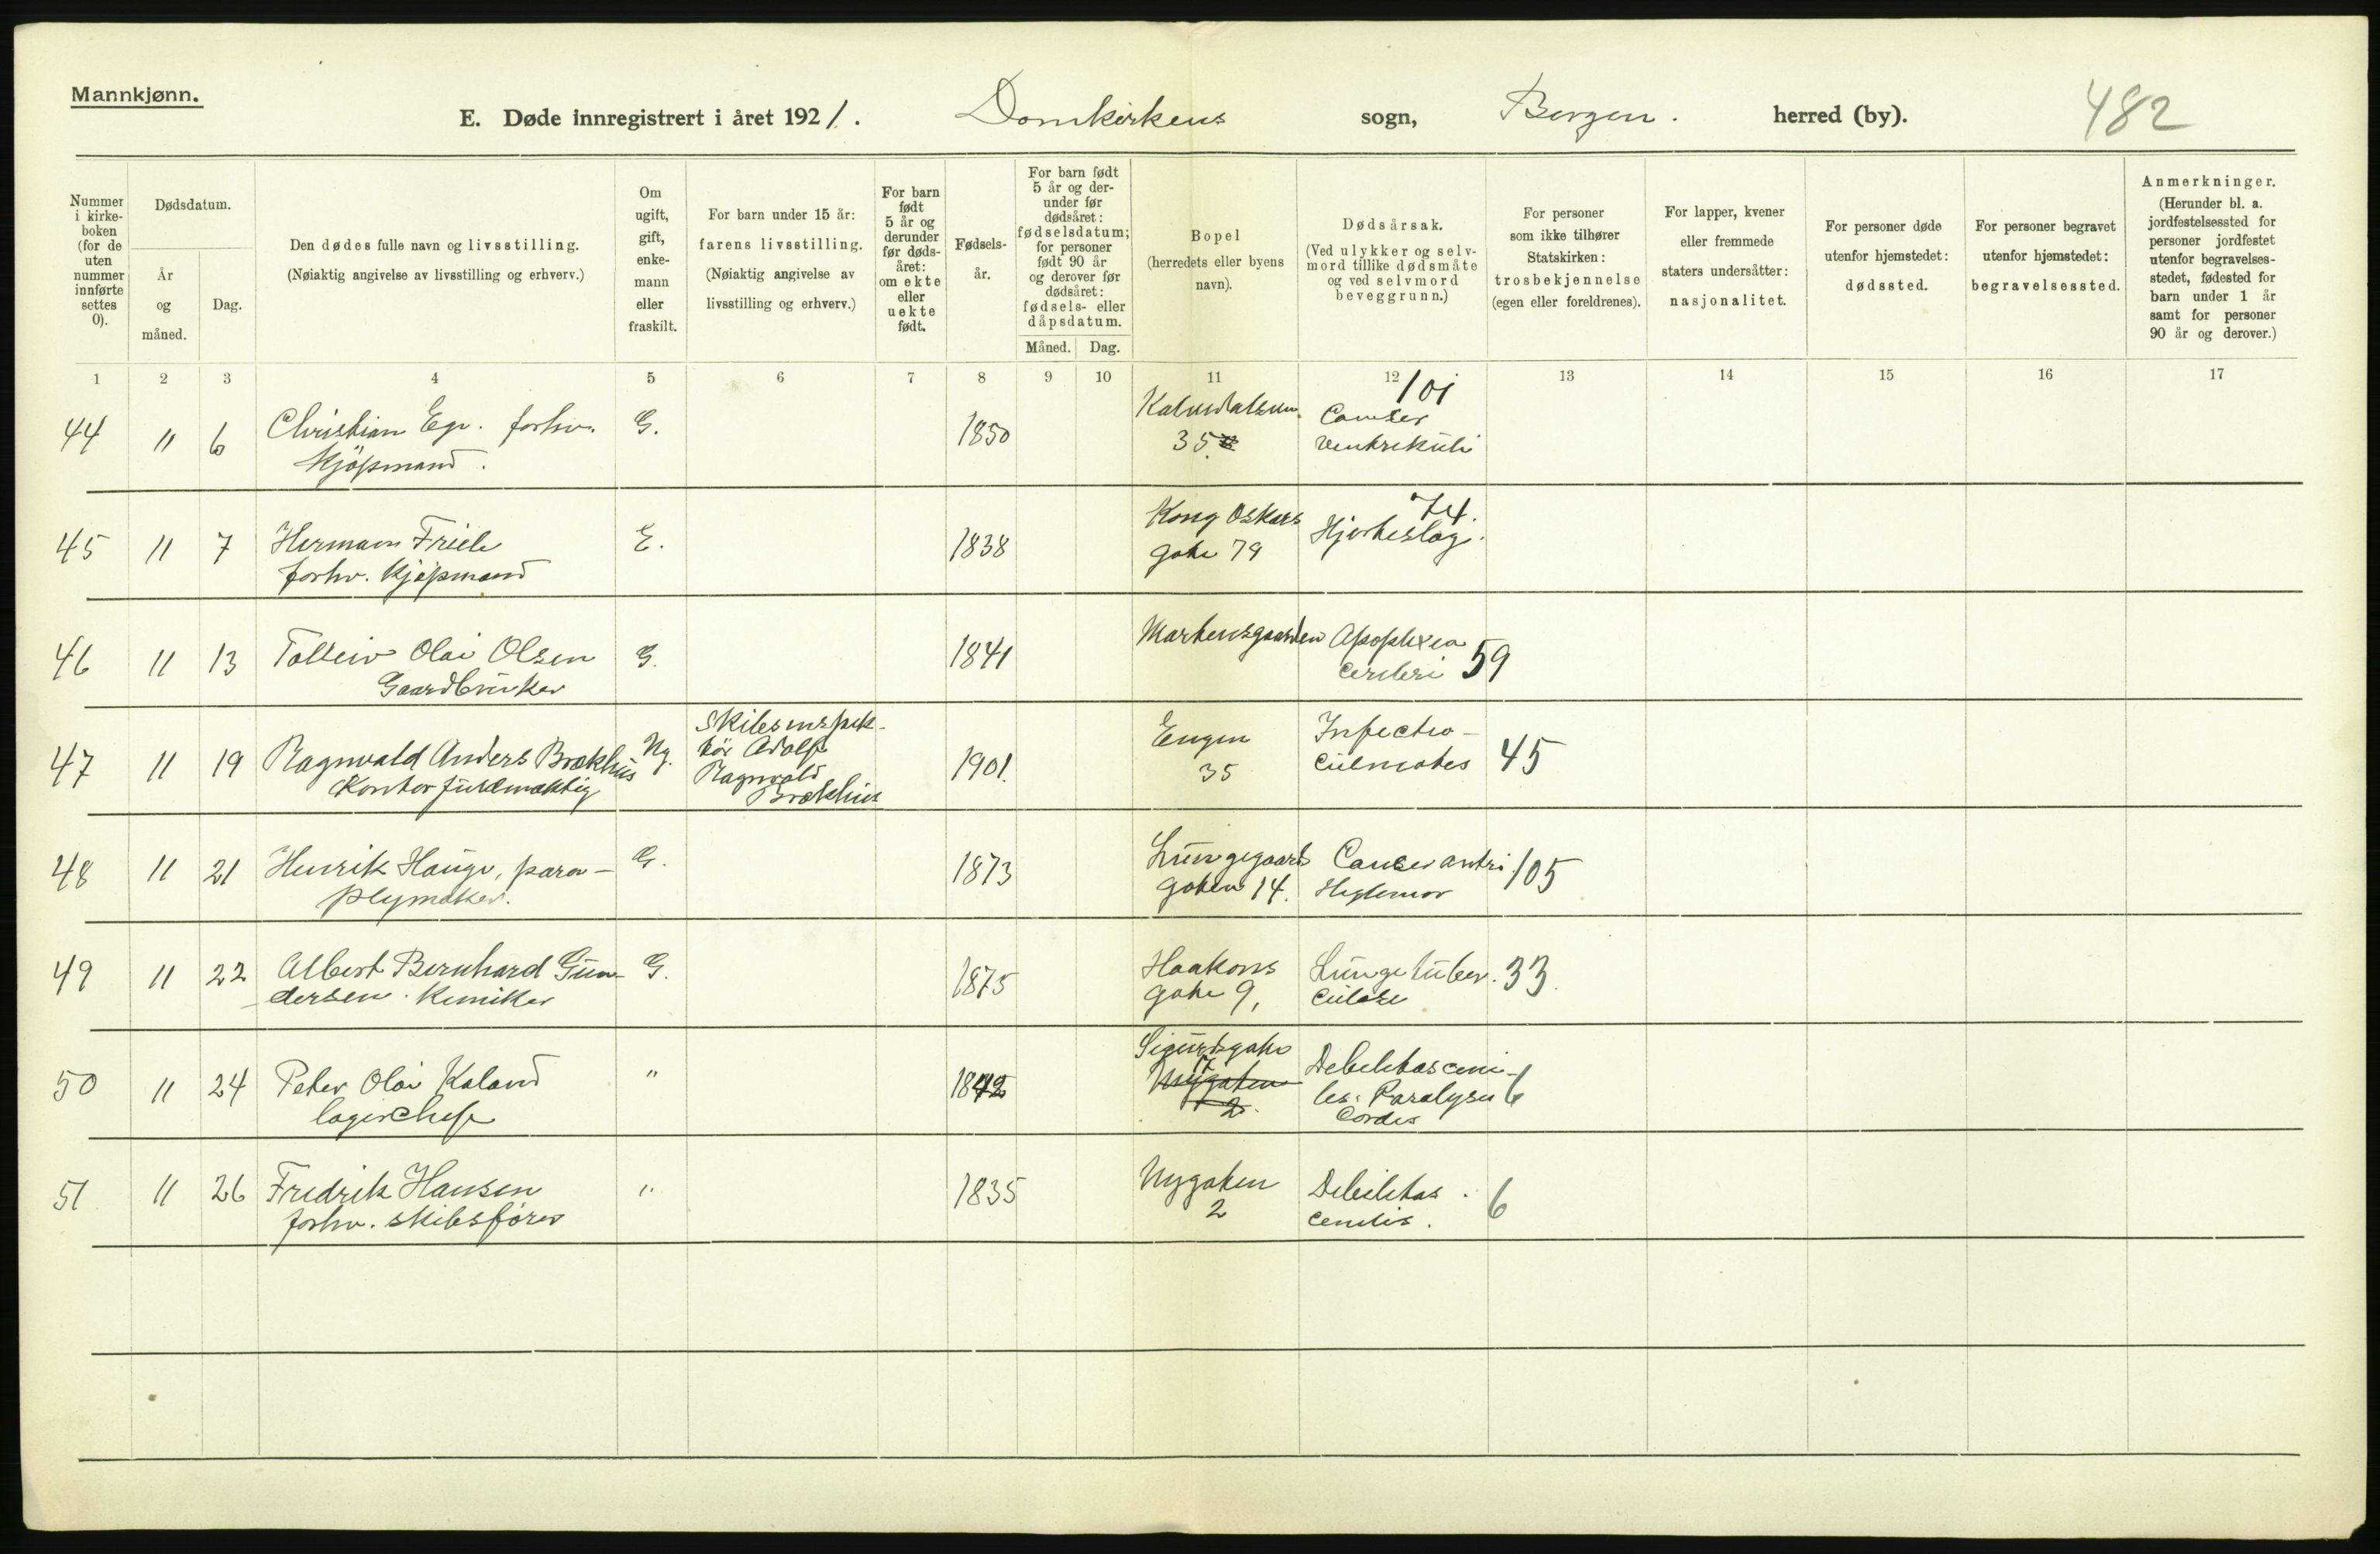 Mannkjønn.
E. Døde innregistrert i året 1921. Domkirkens sogn, Bergen. herred (by). 482
Nummer i kirkeboken (for de uten nummer innførte settes 0).
Dødsdatum.
År og måned.
Dag.
Den dødes fulle navn og livsstilling.
(Nøiaktig angivelse av livsstilling og erhverv.)
Om ugift, gift, enkemann eller fraskilt.
For barn under 15 år:
farens livsstilling.
(Nøiaktig angivelse av livsstilling og erhverv.)
For barn født 5 år og derunder før dødsåret: om ekte eller uekte født.
Fødselsår.
For barn født 5 år og derunder før dødsåret: fødselsdatum; for personer født 90 år og derover før dødsåret: fødsels- eller dåpsdatum.
Måned. Dag.
Bopel
(herredets eller byens navn).
Dødsårsak.
(Ved ulykker og selvmord tillike dødsmåte og ved selvmord beveggrunn.)
For personer som ikke tilhører Statskirken: trosbekjennelse (egen eller foreldrenes).
For lapper, kvener eller fremmede staters undersåtter: nasjonalitet.
For personer døde utenfor hjemstedet: dødssted.
For personer begravet utenfor hjemstedet: begravelsessted.
Anmerkninger.
(Herunder bl. a. jordfestelsessted for personer jordfestet utenfor begravelsesstedet, fødested for barn under 1 år samt for personer 90 år og derover.)
1 2 3 4 5 6 7 8 9 10 11 12 13 14 15 16 17
44 11 6 Christian forhv. G. 1850 101
Kjøpmand. 35. Ventrikuli
45 11 7 Herman Friele E. 1838 Kong Oskars 74.
forhv. Kjøpmand gate 79 Hjerteslag.
46 11 13 Olai Olsen G. 1841 Martensgaarden Apoplexia
Gaardbruker Cerebri 59
47 11 19 Ragnvald Anders Brækhus Ug. Skibsinspek-
Kontorfuldmæktig tør Adolf
Ragnvald
Brækhus 1901. Engen
35 45
48 11 21 Henrik Hauge, para- G. 1873 Lungegaards Cancer antri
plymaker. gaten 14. Highmor 105
49 11 22 Albert Bernhard Gun- G. 1875 Haakons Lungetuber-
dersen. Kemiker gate 9, culose 33
50 11 24 Peter Olai Kaland " 1842 Sigurdsgate
lagerchef 17
Nygaten
2. Debilitas ceni-
les. Paralysis 6
Cordis
51 11 26 Fredrik Hansen " 1835 Nygaten Debilitas
forhv. skibsfører 2 cenilis. 6